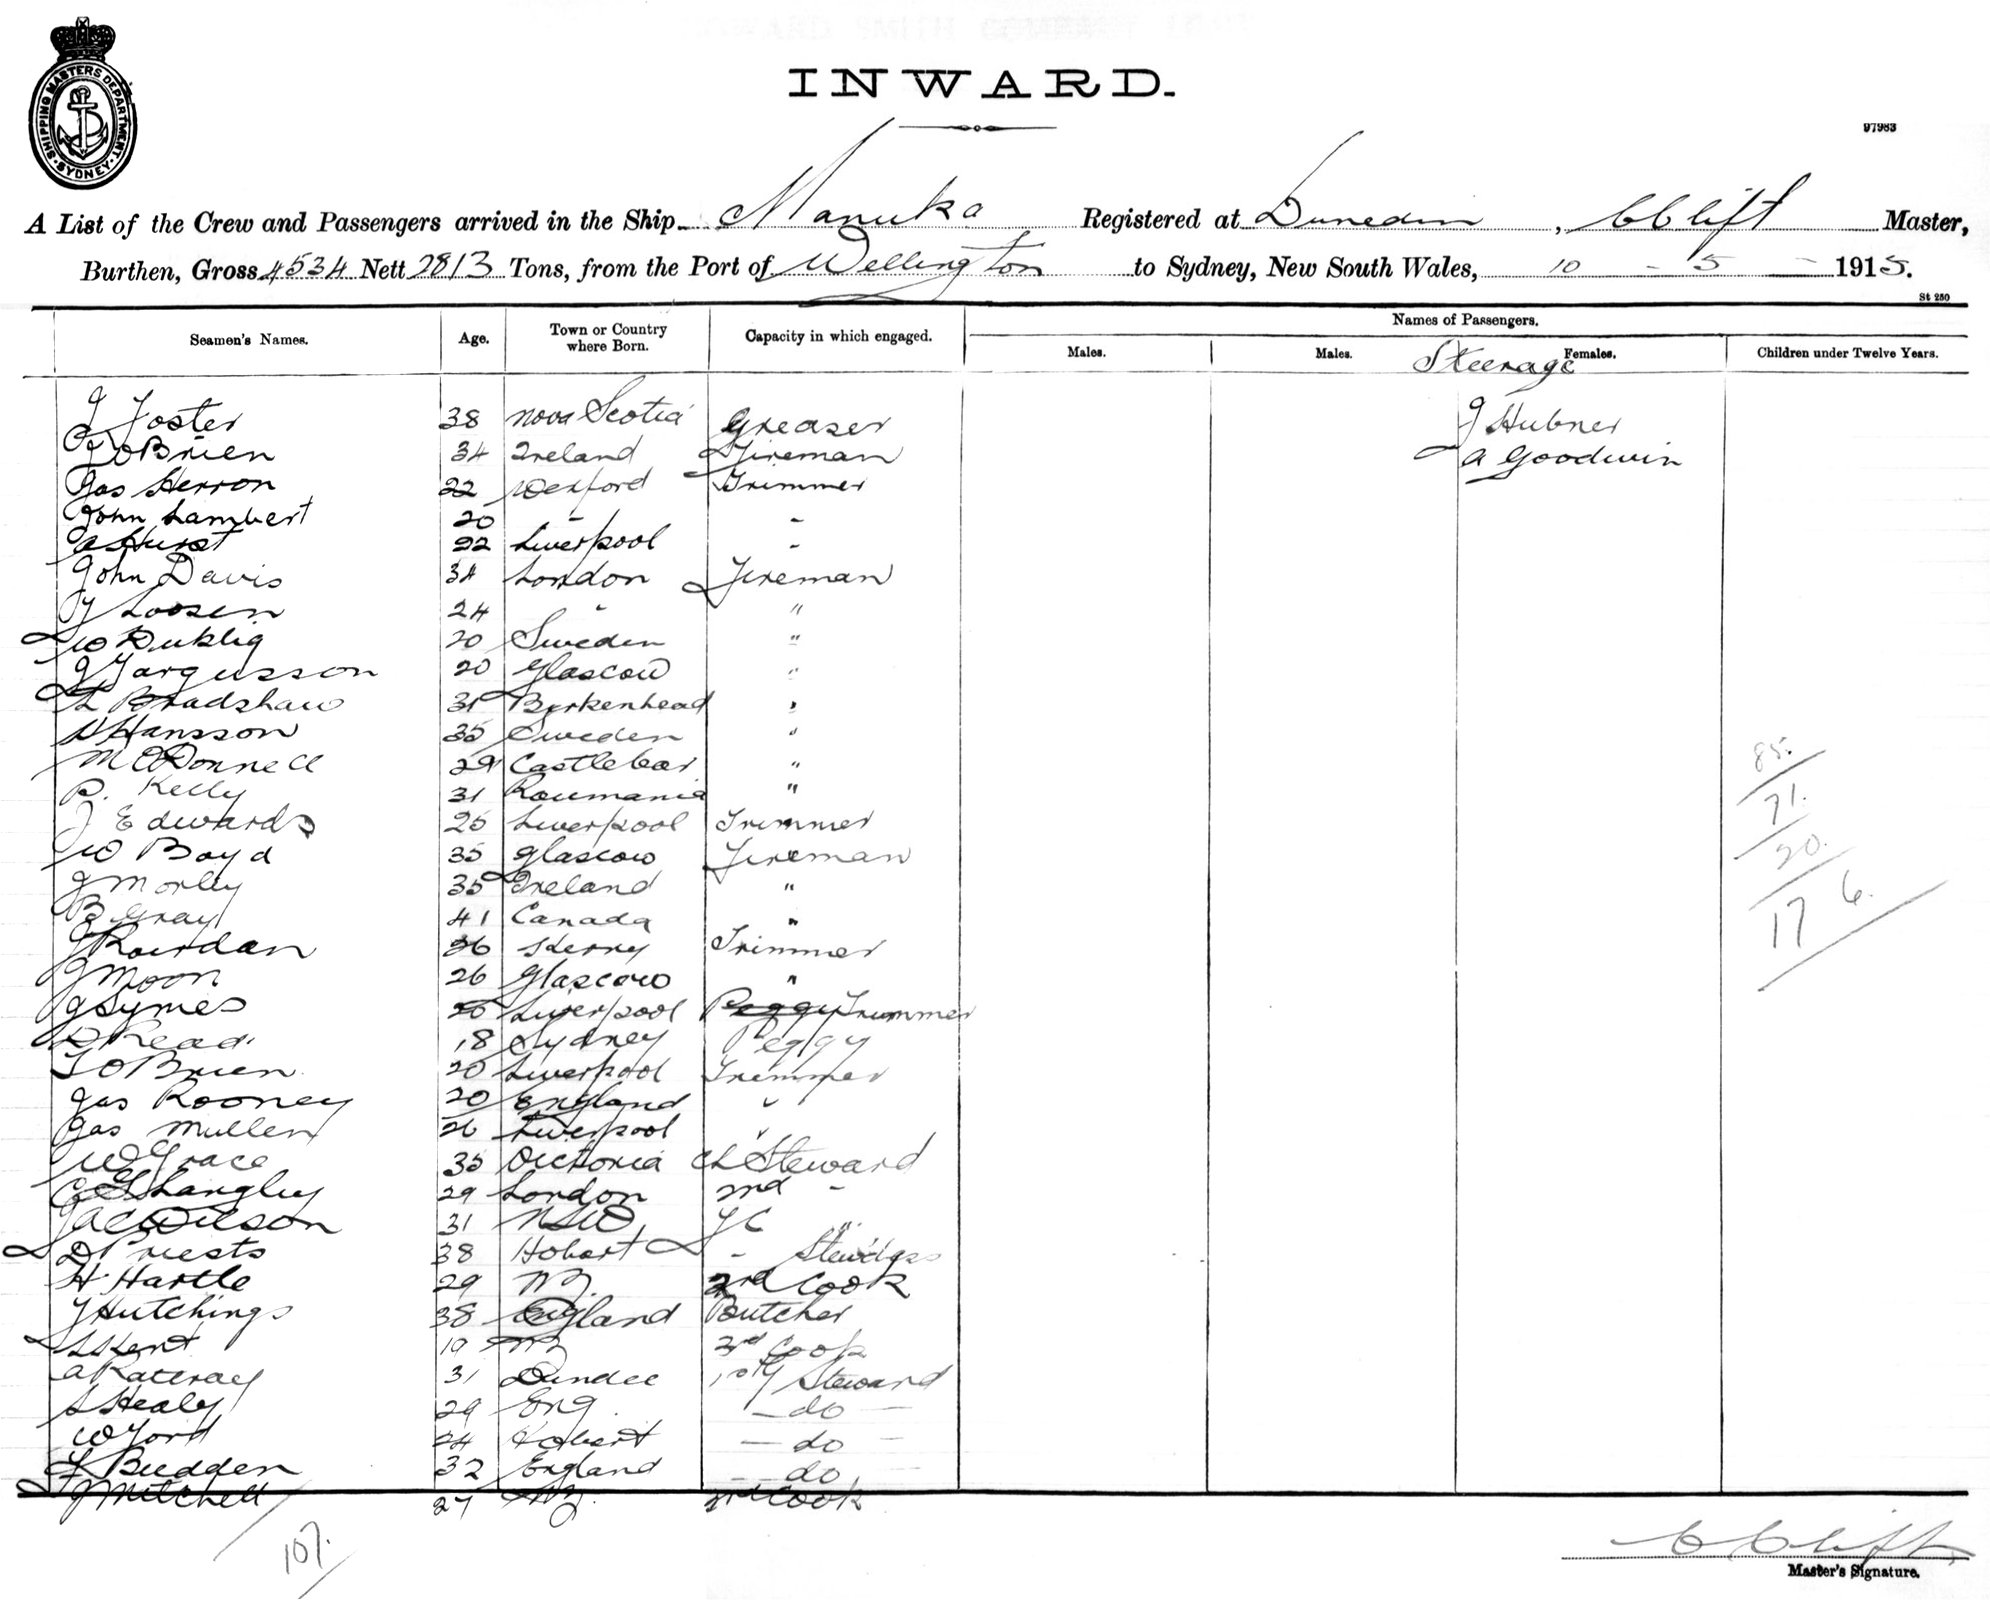 SHIPPING MASTERS DEPARTMENT SYDNEY
INWARD.
97983
A List of the Crew and Passengers arrived in the Ship Manuka Registered at Dunedin, C Clift Master,
Burthen, Gross 4534 Nett 2813 Tons, from the Port of Wellington to Sydney, New South Wales, 10 - 5 - 1915.
St 250
Seamen's Names. Age. Town or Country where Born. Capacity in which engaged. Names of Passengers.
Males. Males. Females. Children under Twelve Years.
Steerage
J Foster 38 Nova Scotia Greaser J Hubner
OBrien 34 Ireland Fireman A Goodwin
Jas Herron 22 Wexford Trimmer
John Lambert 20 " -
A Hurst 22 Liverpool -
John Davis 34 London Fireman
Loosen 24 " "
W Duklig 20 Sweden "
J Fargusson 20 Glascow "
L Bradshaw 31 Birkenhead "
Hansson 35 Sweden "
M ODonnell 29 Castlebar "
P. Kelly 31 Roumania "
J Edwards 25 Liverpool Trimmer
W Boyd 35 Glascow Fireman
J Morley 35 Ireland "
B Gray 41 Canada "
J Rourdan 26 Kerry Trimmer
J Moon 26 Glascow "
G Symes 25 Liverpool Peggy Trimmer
Read 18 Sydney Peggy
T OBrien 20 Liverpool Trimmer
Jas Rooney 20 England "
Jas Mullen 26 Liverpool "
W Grace 35 Victoria Ch Steward
C E Langley 29 London 2nd -
J A C Wilson 31 NSW FC "
D Priests 38 Hobart - Stewdess
H Hartle 29 NZ. 2nd Cook
F Hutchings 38 England Butcher
S Kent 19 NZ 3rd Cook
A Rattray 31 Dundee 10th Steward
S Healy 29 Eng. - do -
W Ford 24 Hobart - do -
F Budden 32 England - do.
J Mitchell 27 NZ. 3rd Cook
85.
71.
20.
17 6.
107.
C Clift
Master's Signature.